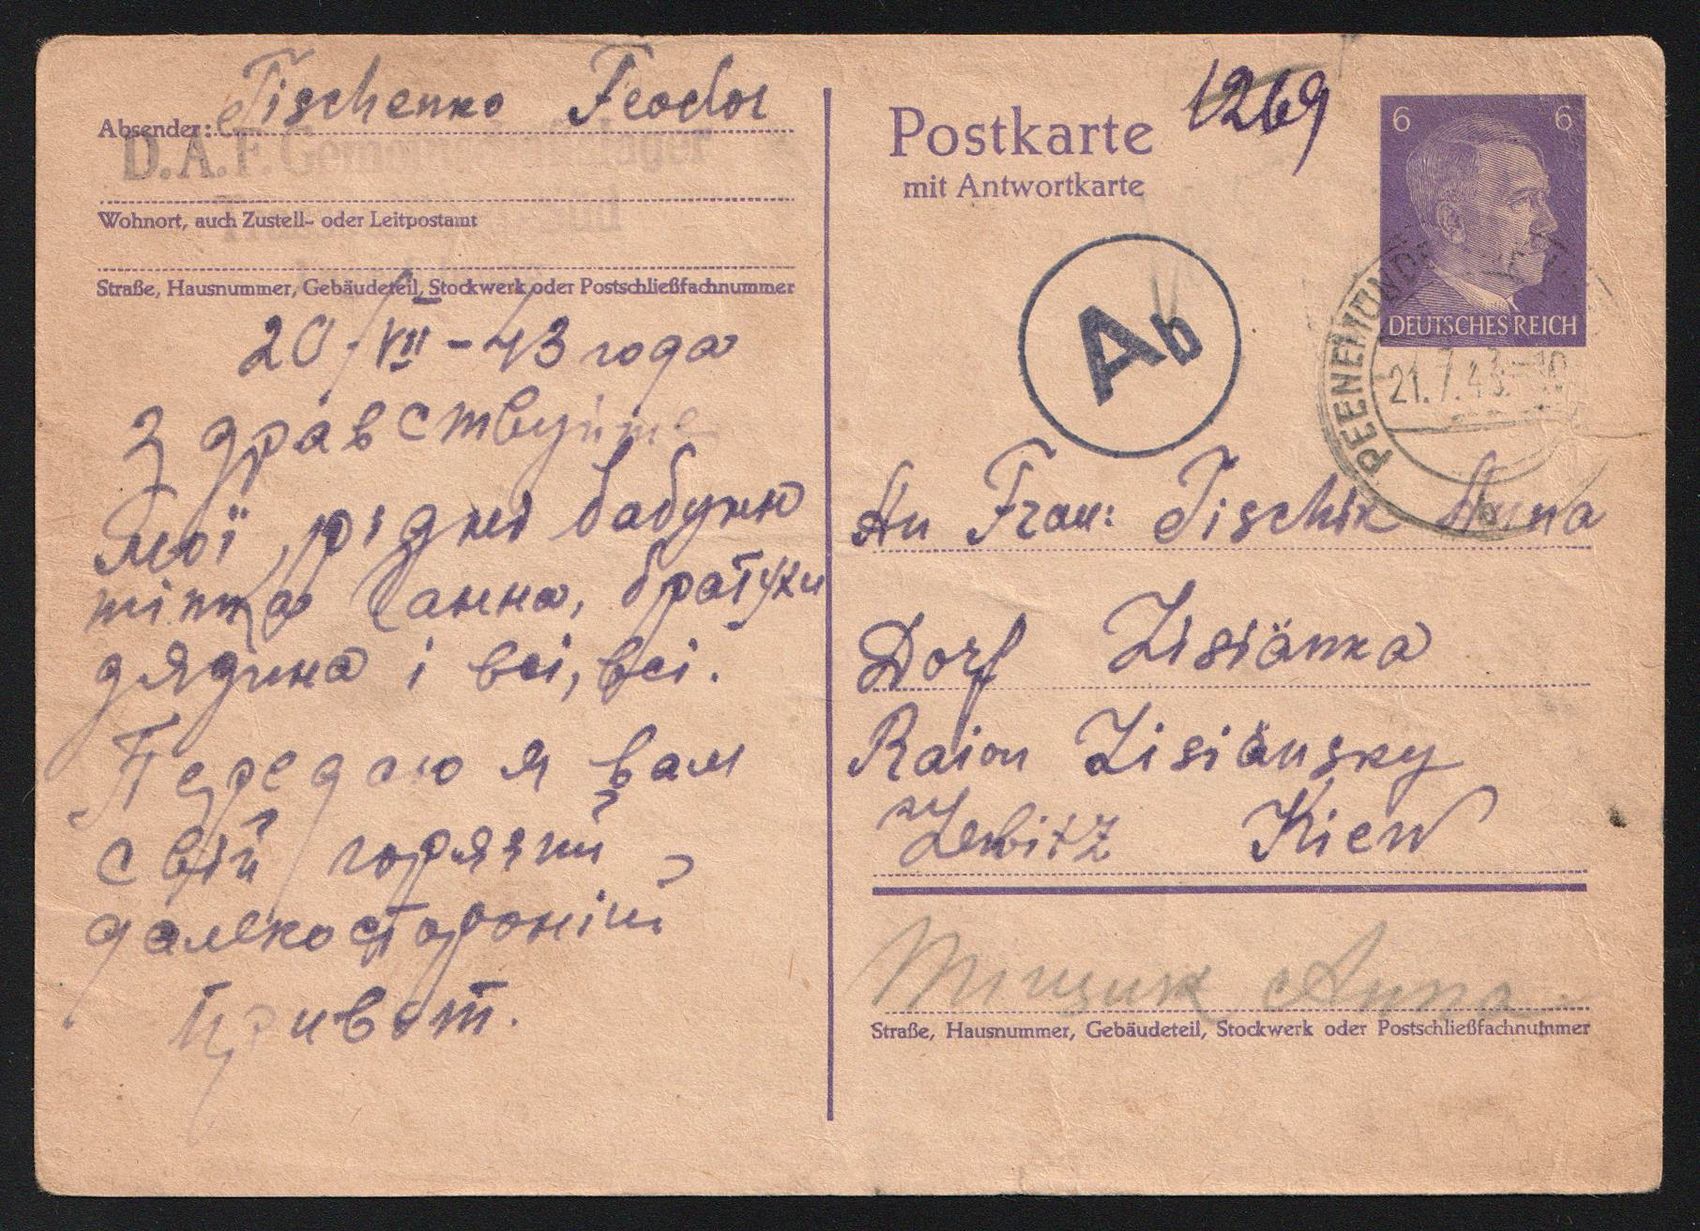 Tischenko Feodor
Absender:
D.A.F. Gemeinschaftslager
Wohnort, auch Zustell- oder Leitpostamt
Straße, Hausnummer, Gebäudeteil, Stockwerk oder Postschließfachnummer
20/VII-43 года
Здравствуйте
мої рідні бабуню
тітка Ганна, братухи
дядина і всі, всі.
Передаю я вам
свій горячий,
далекостороній
привет.
Postkarte
1269
mit Antwortkarte
6 6
DEUTSCHES REICH
PEENEMÜNDE
21.7.43.-10
Ab
An Frau: Tischik Anna
Dorf Lisiänka
Raion Lisiänsky
Kiew
Anna
Straße, Hausnummer, Gebäudeteil, Stockwerk oder Postschließfachnummer